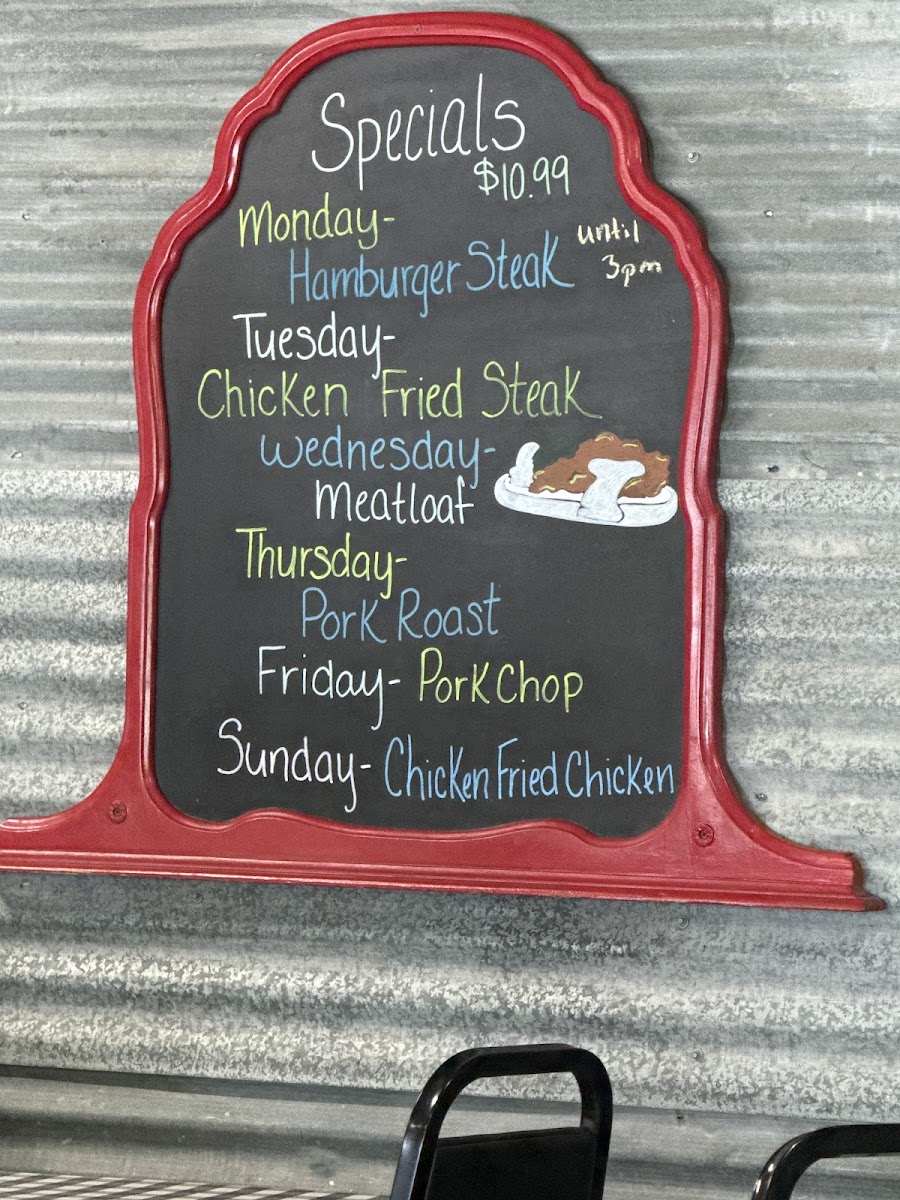 Specials
$10.99
Monday-
until
Hamburger Steak
3pm
Tuesday-
Chicken Fried Steak
Wednesday-
Meatloaf
Thursday-
Pork Roast
Friday- Pork Chop
Sunday- Chicken Fried Chicken